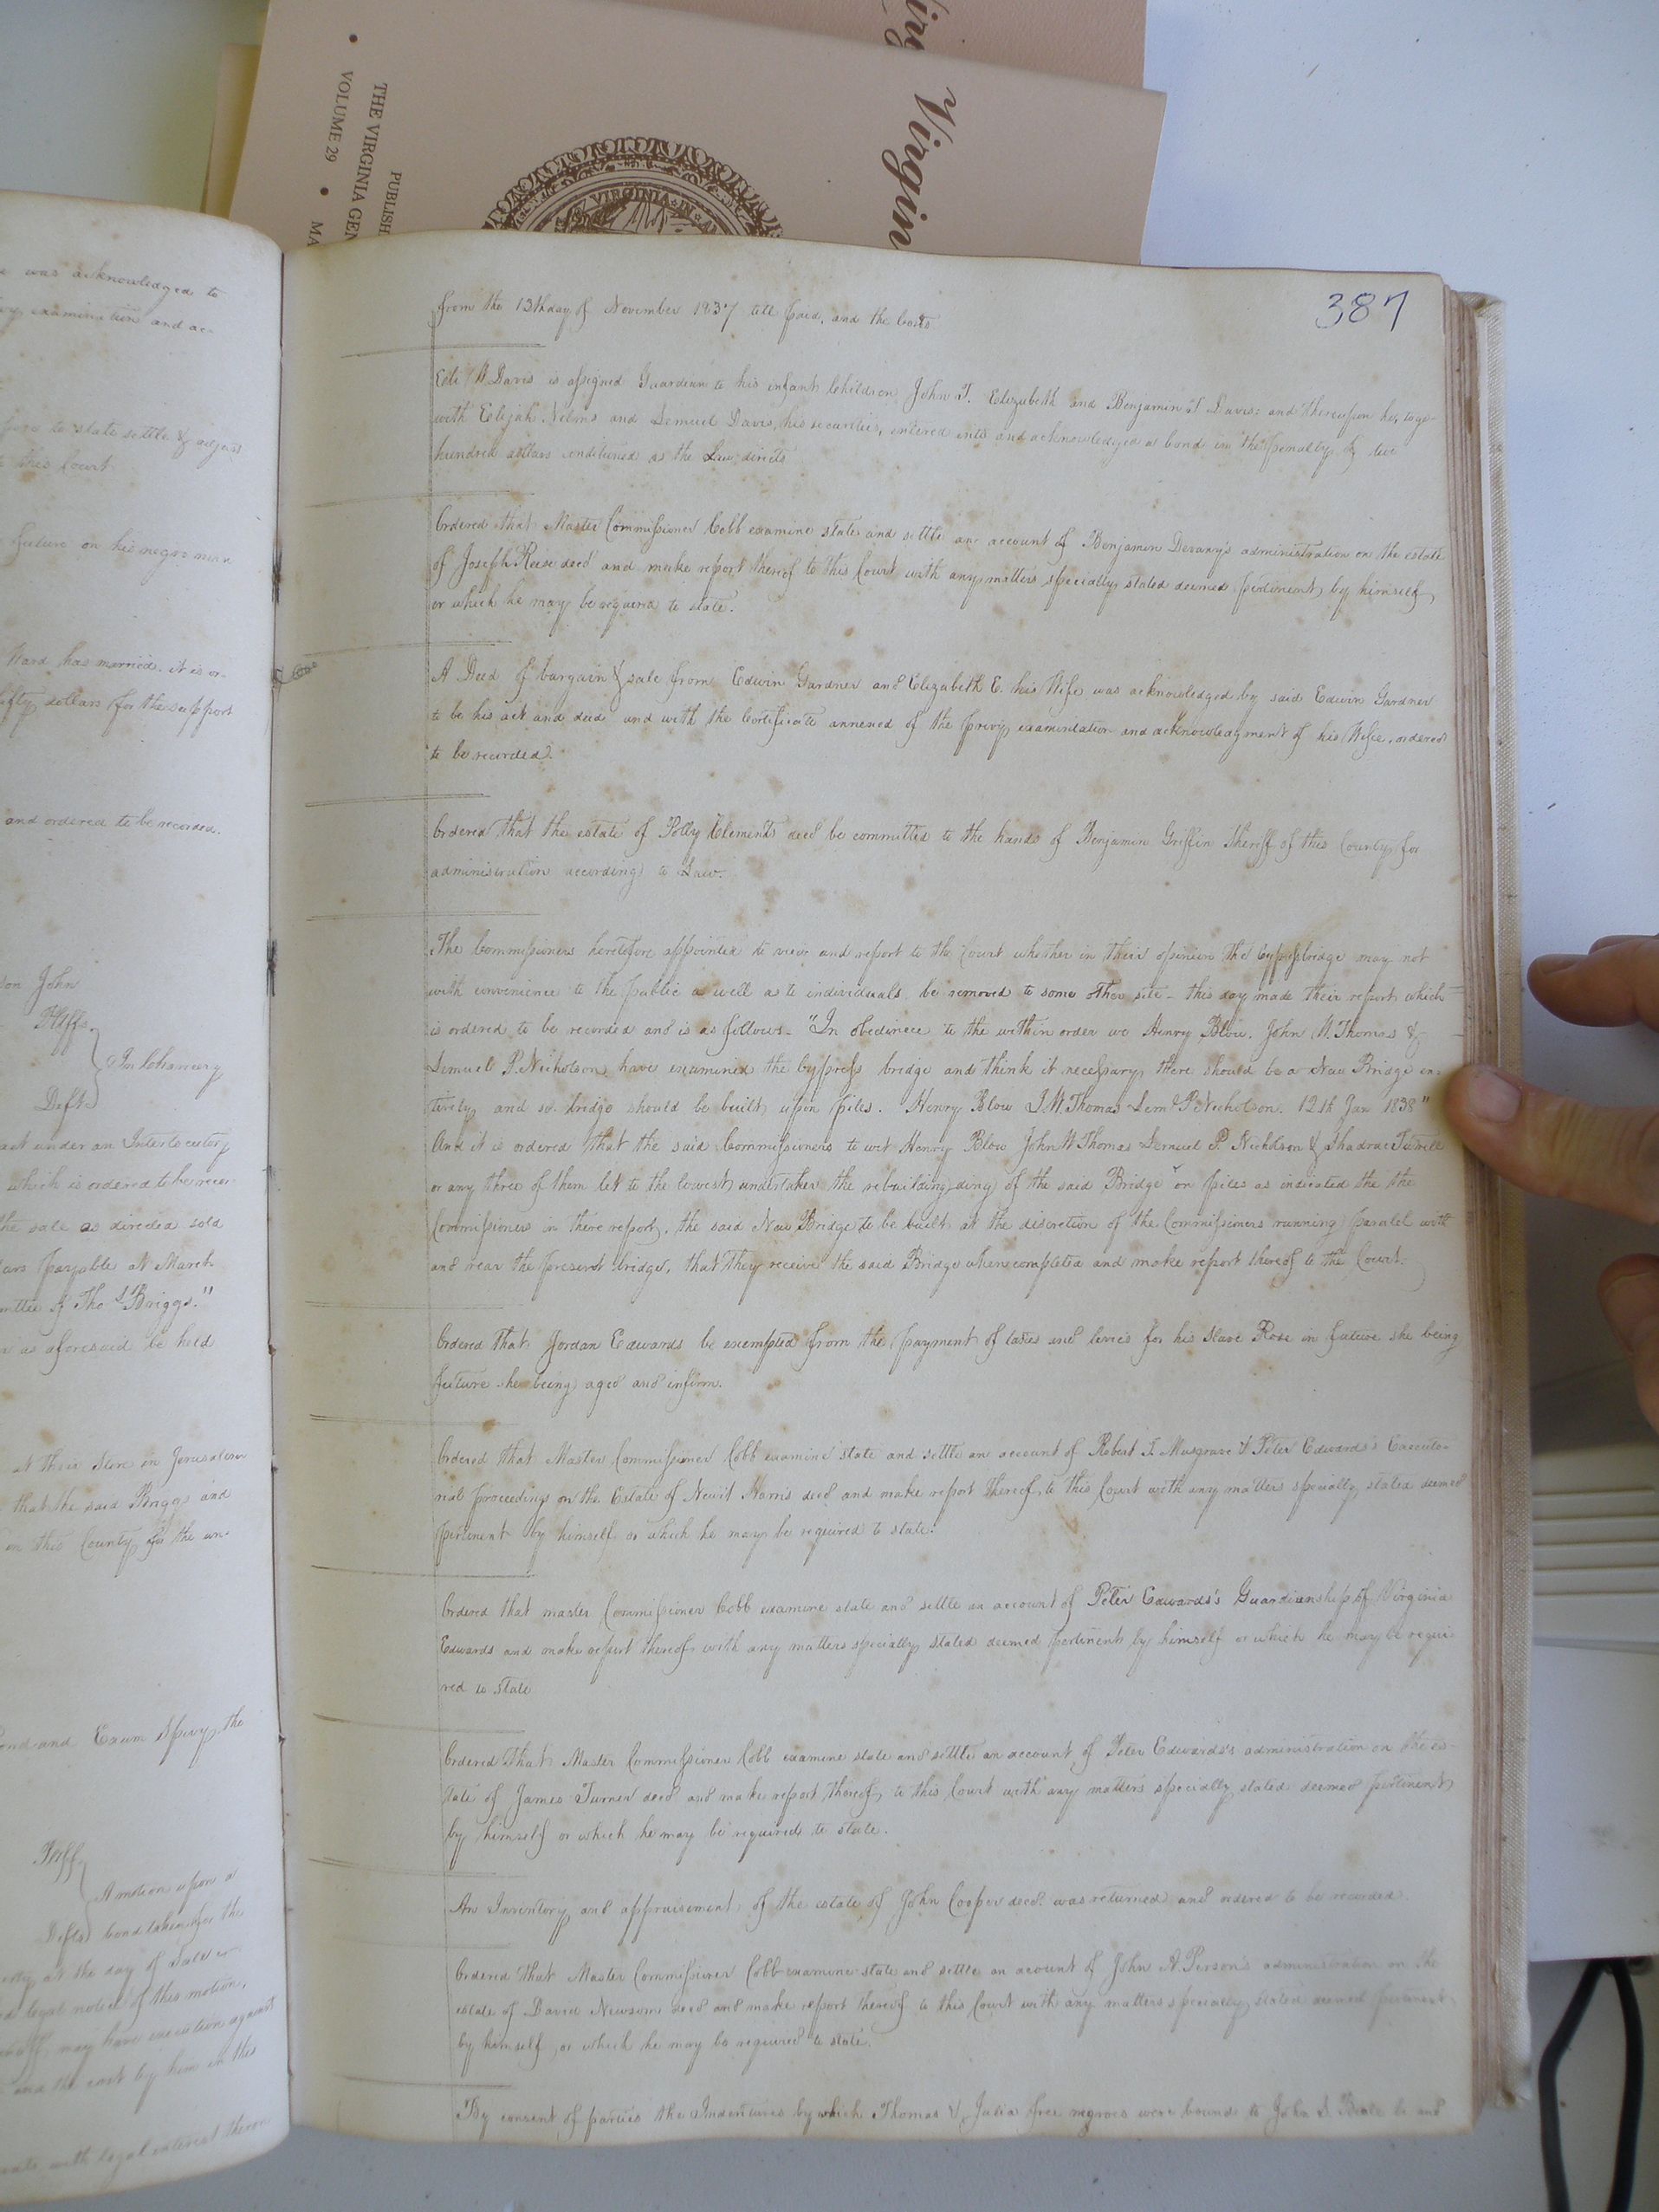 Virgin
PUBLISH
THE VIRGINIA GEN
VOLUME 29 • MA
VIRGINIA IN
was acknowledged to
examination and ac-
to state settle & adjust
this Court
future on his negro man
Ward has married. it is or-
fifty dollars for the support
and ordered to be recorded.
son John
Plffs.
In Chancery
Defts
act under an Interlocutory
which is ordered to be recor-
the sale as directed sold
payable at March
of Tho Briggs."
as aforesaid be held
at their Store in Jerusalem
that the said Briggs and
in this County for the un-
and Exum Spivy, the
Plff
A motion upon a
Defts bond taken for the
at the day of Sale or
legal notice of this motion,
may have execution against
and the cost by him in this
with legal interest thereon
387
from the 13th day of November 1837 till paid, and the costs
W Davis is assigned Guardian to his infant Children John T. Elizabeth and Benjamin Davis: and thereupon he, toge-
with Elijah Nelms and Lemuel Davis, his securities, entered into and acknowledged a bond in the penalty of two
hundred dollars conditioned as the Law directs
Ordered that Master Commissioner Cobb examine state and settle an account of Benjamin Devany's administration on the estate
of Joseph Reese decd and make report thereof to this Court with any matters specially stated deemed pertinent by himself
or which he may be required to state.
A Deed of bargain & sale from Edwin Gardner and Elizabeth E. his Wife was acknowledged by said Edwin Gardner
to be his act and deed and with the Certificate annexed of the privy examination and acknowledgment of his Wife, ordered
to be recorded.
Ordered that the estate of Polly Clements decd be committed to the hands of Benjamin Griffin Sheriff of this County for
administration according to Law.
The Commissioners heretofore appointed to view and report to the Court whether in their opinion the Cypress bridge may not
with convenience to the public as well as to individuals be removed to some other site - this day made their report which
is ordered to be recorded and is as follows - "In obedience to the within order we Henry Blow, John W. Thomas &
Lemuel P. Nicholson, have examined the Cypress bridge and think it necessary there should be a New Bridge en-
tirely and sd. bridge should be built upon piles. Henry Blow J.W. Thomas Leml P Nicholson. 12th Jan 1838"
And it is ordered that the said Commissioners to wit Henry Blow John W Thomas Lemuel P. Nicholson & Shadrac
or any three of them let to the lowest undertaker the rebuilding of the said Bridge on piles as indicated the the
Commissioners in there report, the said New Bridge to be built at the discretion of the Commissioners running paralel with
and near the present bridge, that they receive the said Bridge when completed and make report thereof to the Court.
Ordered that Jordan Edwards be exempted from the payment of taxes and levies for his Slave Rose in future she being
future she being aged and infirm.
Ordered that Master Commissioner Cobb examine state and settle an account of Robert T. Musgrave & Peter Edwards's Executo-
rial proceedings on the Estate of Newit Harris decd and make report thereof to this Court with any matters specially stated deemed
pertinent by himself or which he may be required to state.
Ordered that master Commissioner Cobb examine state and settle an account of Peter Edwards's Guardianship of Virginia
Edwards and make report thereof with any matters specially stated deemed pertinent by himself or which he may be requi
red to state
Ordered that Master Commissioner Cobb examine state and settle an account of Peter Edwards's administration on the es-
tate of James Turner decd and make report thereof to this Court with any matters specially stated deemed pertinent
by himself or which he may be required to state.
An Inventory and appraisement of the estate of John Cooper decd. was returned and ordered to be recorded.
Ordered that Master Commissioner Cobb examine state and settle an account of John A. Person's administration on the
estate of David Newsom decd and make report thereof to this Court with any matters specially stated deemed pertinent
by himself, or which he may be required to state.
By consent of parties the Indentures by which Thomas & Julia free negroes were bound to John S. Beale be and